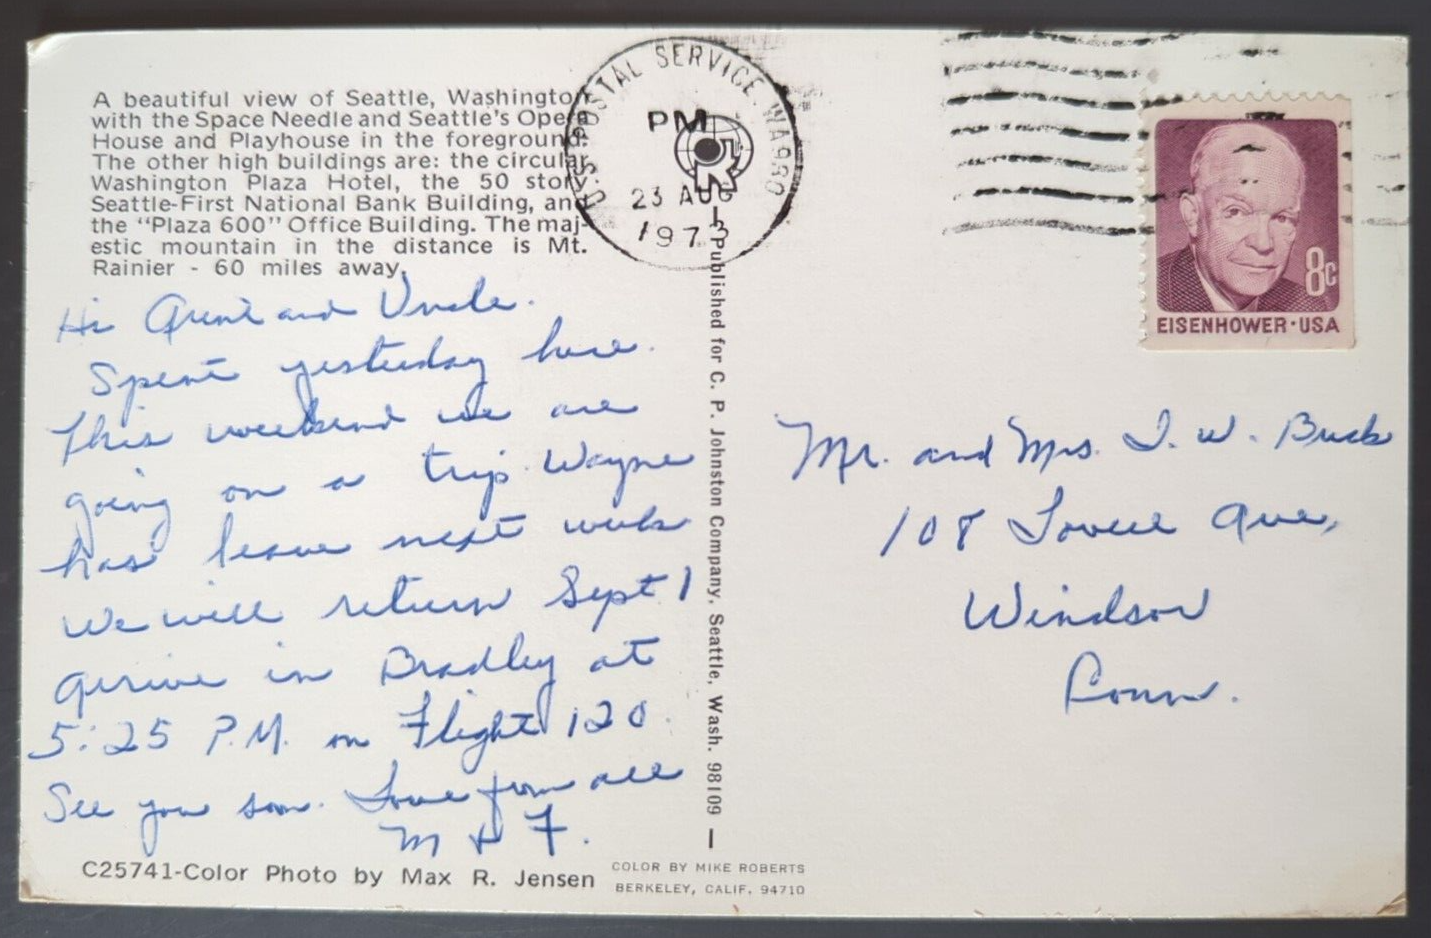 A beautiful view of Seattle, Washington
with the Space Needle and Seattle's Opera
House and Playhouse in the foreground.
The other high buildings are: the circular
Washington Plaza Hotel, the 50 story
Seattle-First National Bank Building, and
the "Plaza 600" Office Building. The maj-
estic mountain in the distance is Mt.
Rainier - 60 miles away.
Hi Aunt and Uncle.
Spent yesterday here.
This weekend we are
going on a trip. Wayne
has leave next week
We will return Sept 1
arrive in Bradley at
5:25 P.M. on Flight 120.
See you soon. Love from all
M & F.
C25741-Color Photo by Max R. Jensen
COLOR BY MIKE ROBERTS
BERKELEY, CALIF. 94710
Published for C. P. Johnston Company, Seattle, Wash. 98109
U.S. POSTAL SERVICE. WA980
PM
23 AUG
1973
8c
EISENHOWER·USA
Mr. and Mrs. I. W. Buck
108 Ave,
Windsor
Conn.